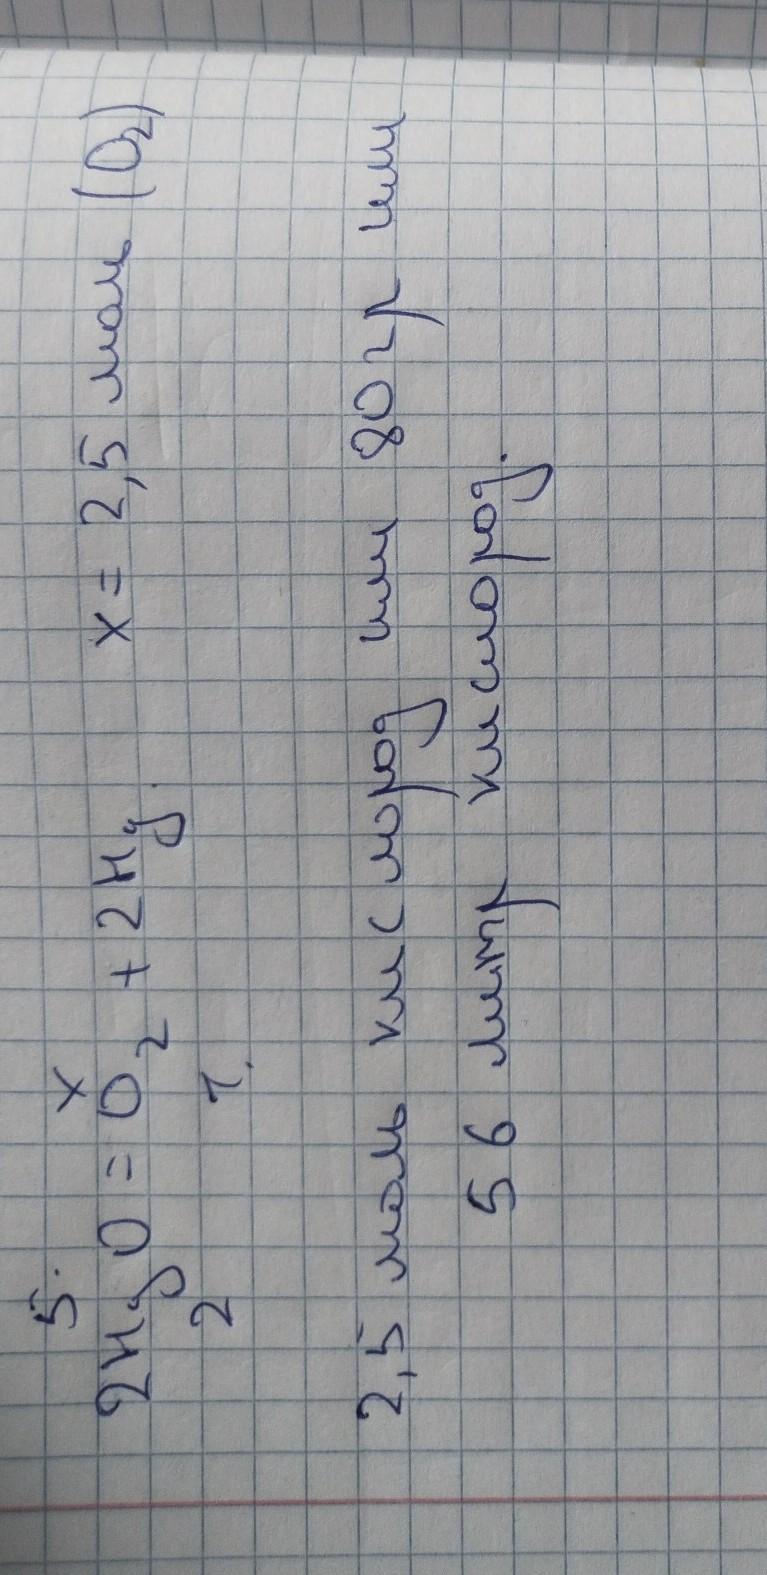 5. x
2HgO = O2 + 2Hg. x = 2,5 моль (O2)
2 1.
2,5 моль кислород или 80 гр или
56 литр кислород.